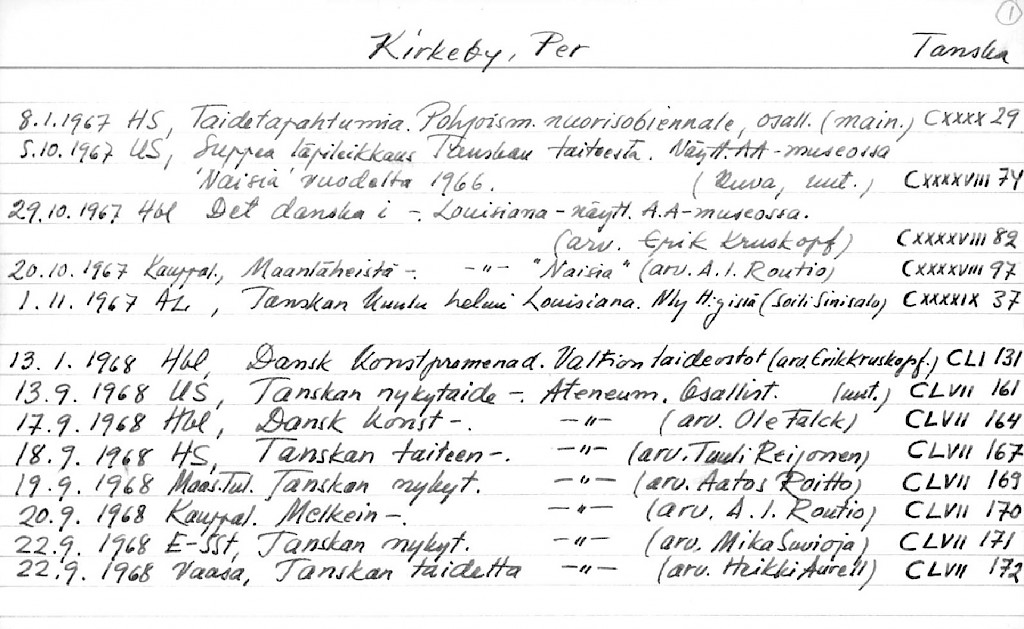 1
Kirkeby, Per Tanska
8.1.1967 HS, Taidetapahtumia. Pohjoism. nuorisobiennale, osall. (main.) CXXXX 29
5.10.1967 US, Suppea läpileikkaus Tanskan taiteesta. Näytt. AA-museossa
'Naisia' vuodelta 1966. (kuva, uut.) CXXXXVIII 74
29.10.1967 Hbl Det danska i -. Louisiana-näytt. A.A-museossa.
(arv. Erik Kruskopf) CXXXXVIII 82
20.10.1967 Kauppal., Maanläheistä -. -"- "Naisia" (arv. A.I. Routio) CXXXXVIII 97
1.11.1967 AL, Tanskan kuulu helmi Louisiana. Nly H:gissä (Soili Sinisalo) CXXXXIX 37
13.1.1968 Hbl, Dansk konstpromenad. Valtion taideostot (arv. Erik Kruskopf.) CLI 131
13.9.1968 US, Tanskan nykytaide -. Ateneum. Osallist. (uut.) CLVII 161
17.9.1968 Hbl, Dansk konst -. -"- (arv. Ole Falck) CLVII 164
18.9.1968 HS, Tanskan taiteen -. -"- (arv. Tuuli Reijonen) CLVII 167
19.9.1968 Maas.Tul. Tanskan nykyt. -"- (arv. Aatos Roitto) CLVII 169
20.9.1968 Kauppal. Melkein -. -"- (arv. A.I. Routio) CLVII 170
22.9.1968 E-SSt, Tanskan nykyt. -"- (arv. Mika Suvioja) CLVII 171
22.9.1968 Vaasa, Tanskan taidetta -"- (arv. Heikki Aurell) CLVII 172